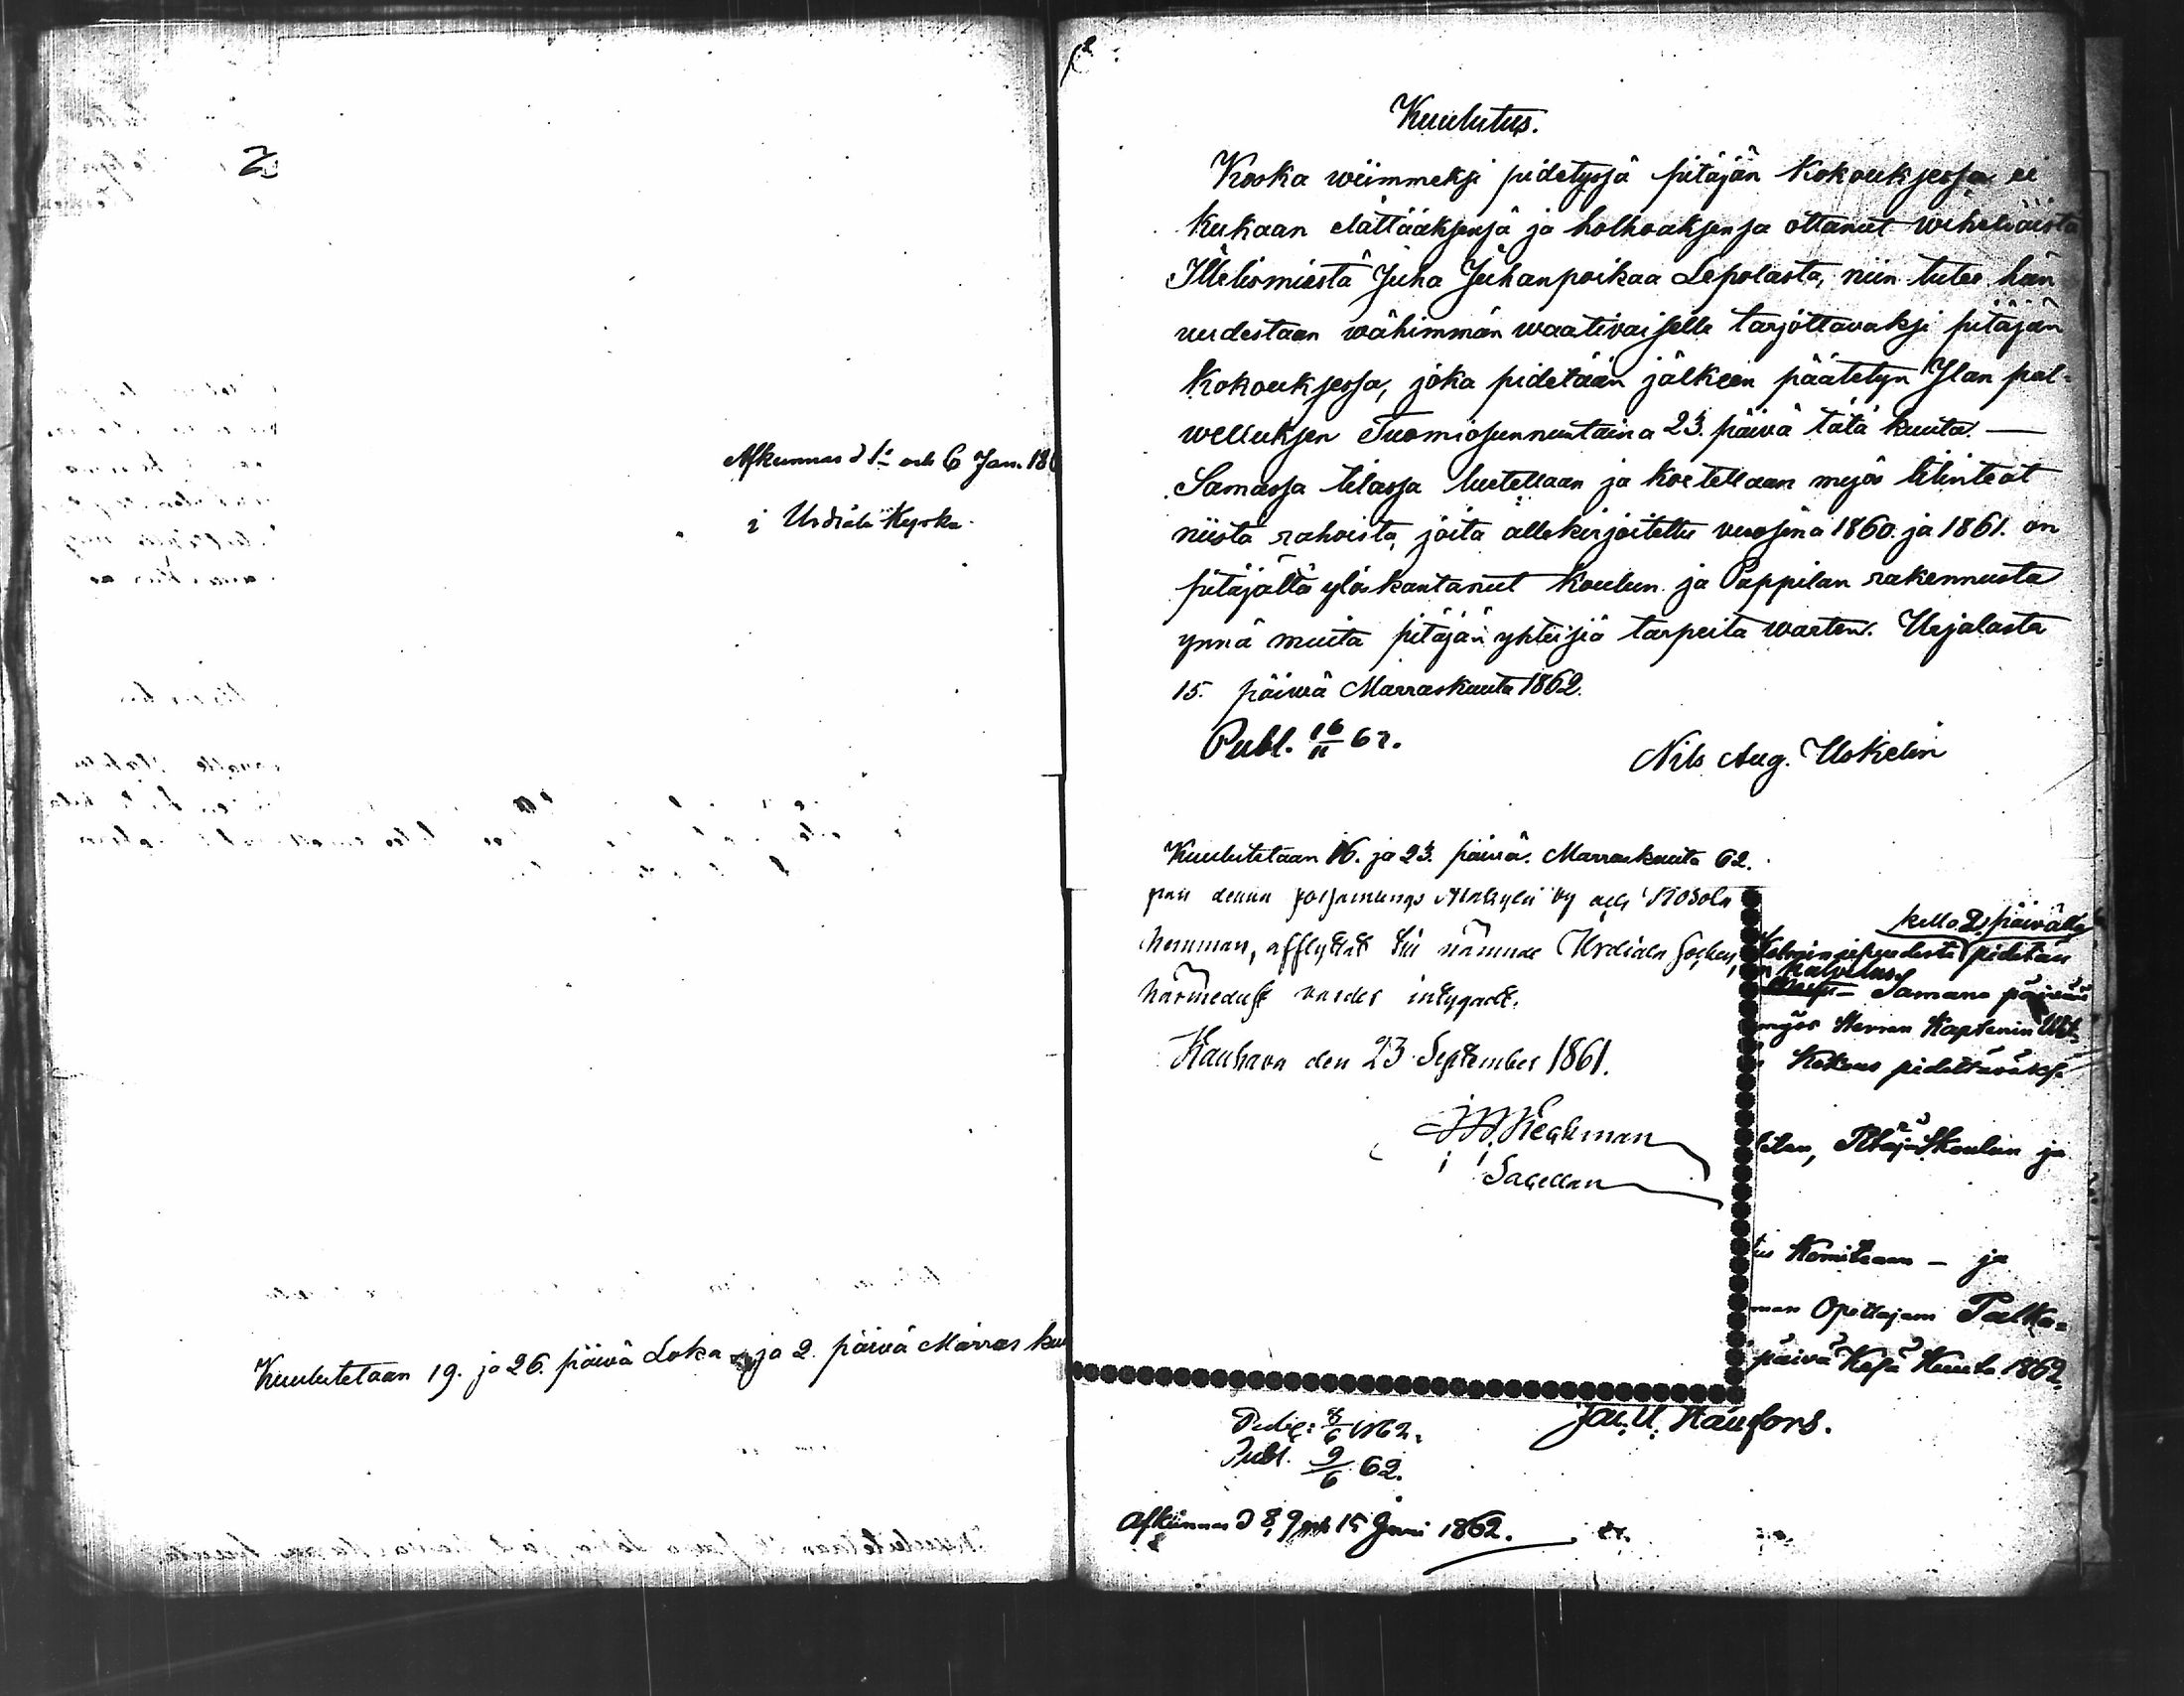 Afkunnas d 1ª och 6 Jan. 18
i Urdiala Kyrka.
Kuulutetaan 19. ja 26. päivä Loka ja 2. päivä Marras kuu
Kuulutus.
Koska wiimmeksi pidetyssä pitäjän Kokouksessa ei
kukaan elättääksensä ja holhoaksensa ottanut wiheliäistä
Juha Juhanpoikaa Lepolasta, niin tulee hän
uudestaan wähimmän waativaiselle tarjottavaksi pitäjän
Kokouksessa, joka pidetään jälkeen päätetyn Jlan pal-
welluksen Tuomiosunnuntaina 23. päivä tätä kuuta. —
Samassa tilassa luetellaan ja koetellaan myös tilinteot
niistä rahoista, joita allekirjoitettu vuosina 1860. ja 1861. on
pitäjältä ylöskantanut Koulun ja Pappilan rakennusta
ynnä muita pitäjän yhteisiä tarpeita warten. Urjalasta
15. päiwä Marraskuuta 1862.
Publ. 16/11 62.
Nils Aug. Uskelin
Kuulutetaan 16. ja 23. päivä. Marraskuuta 62.
från denna församlings Alakylä by och
hemman, afflyttat till nämnde Urdiala Socken,
härmedelst varder intygadt.
Kauhava den 23 September 1861.
Sacellan
kello 2 päivällä
pidetän
Samana päivänä
myös Herran Kaptenin
Kokous pidettäväksi
Pitäjä Skoulun ja
Komitean — ja
man Opettajam Palka-
päivä Kesä Kuuta 1862.
Jac. U. Haufors.
8/6 1862.
Publ. 9/6 62.
Afkünnas d 8, 9 och 15 Juni 1862.